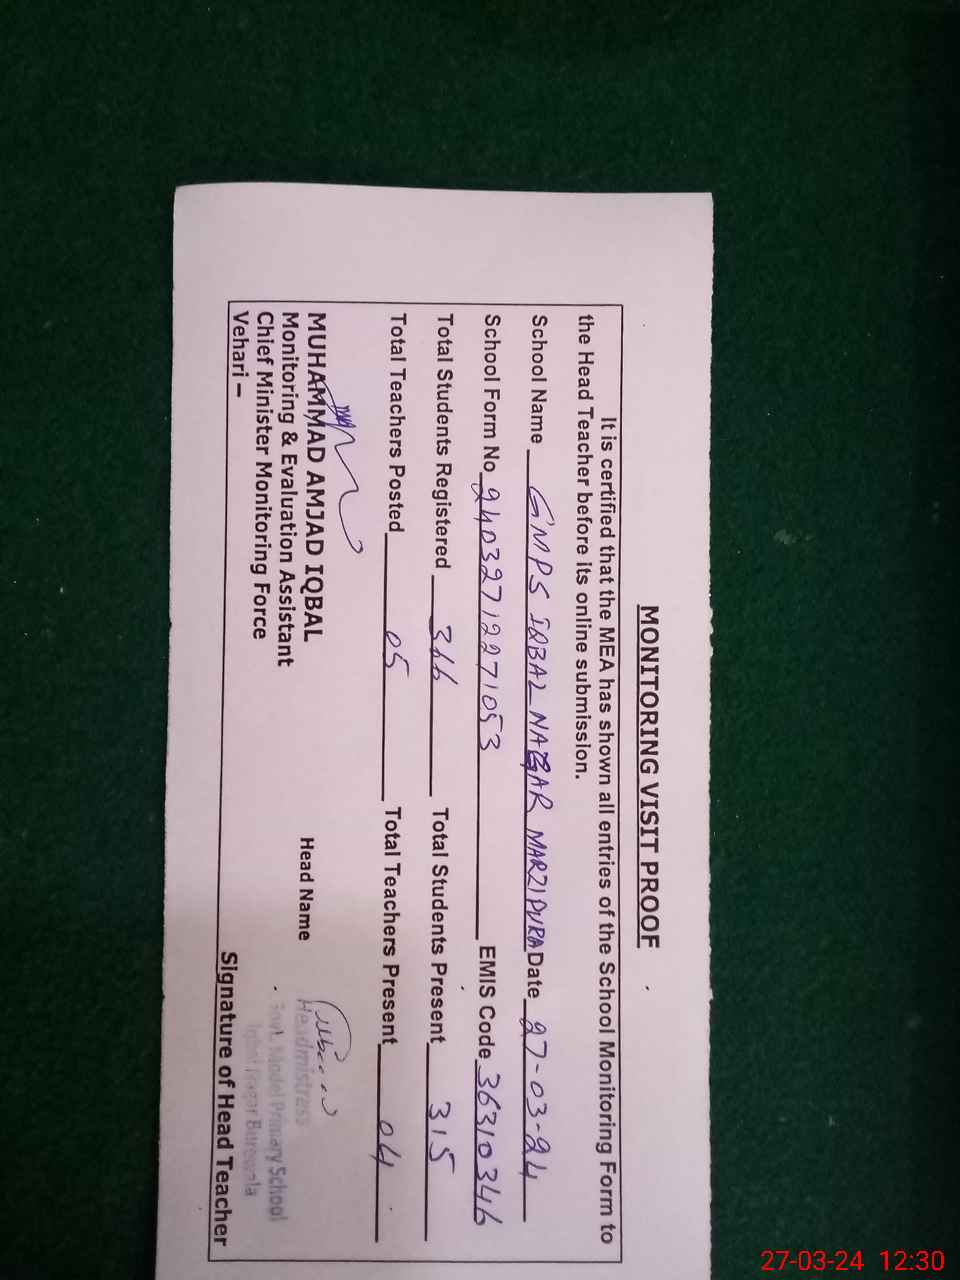 MONITORING VISIT PROOF
It is certified that the MEA has shown all entries of the School Monitoring Form to
the Head Teacher before its online submission.
School Name GMPS IQBAL NAGAR MARZIPURA Date 27-03-24
School Form No 24032712271053 EMIS Code 36310346
Total Students Registered 366 Total Students Present 315
Total Teachers Posted 05 Total Teachers Present 04
MUHAMMAD AMJAD IQBAL
Monitoring & Evaluation Assistant
Chief Minister Monitoring Force
Vehari –
Head Name
Headmistress
Govt. Model Primary School
Iqbal Nagar Burewala
Signature of Head Teacher
27-03-24 12:30